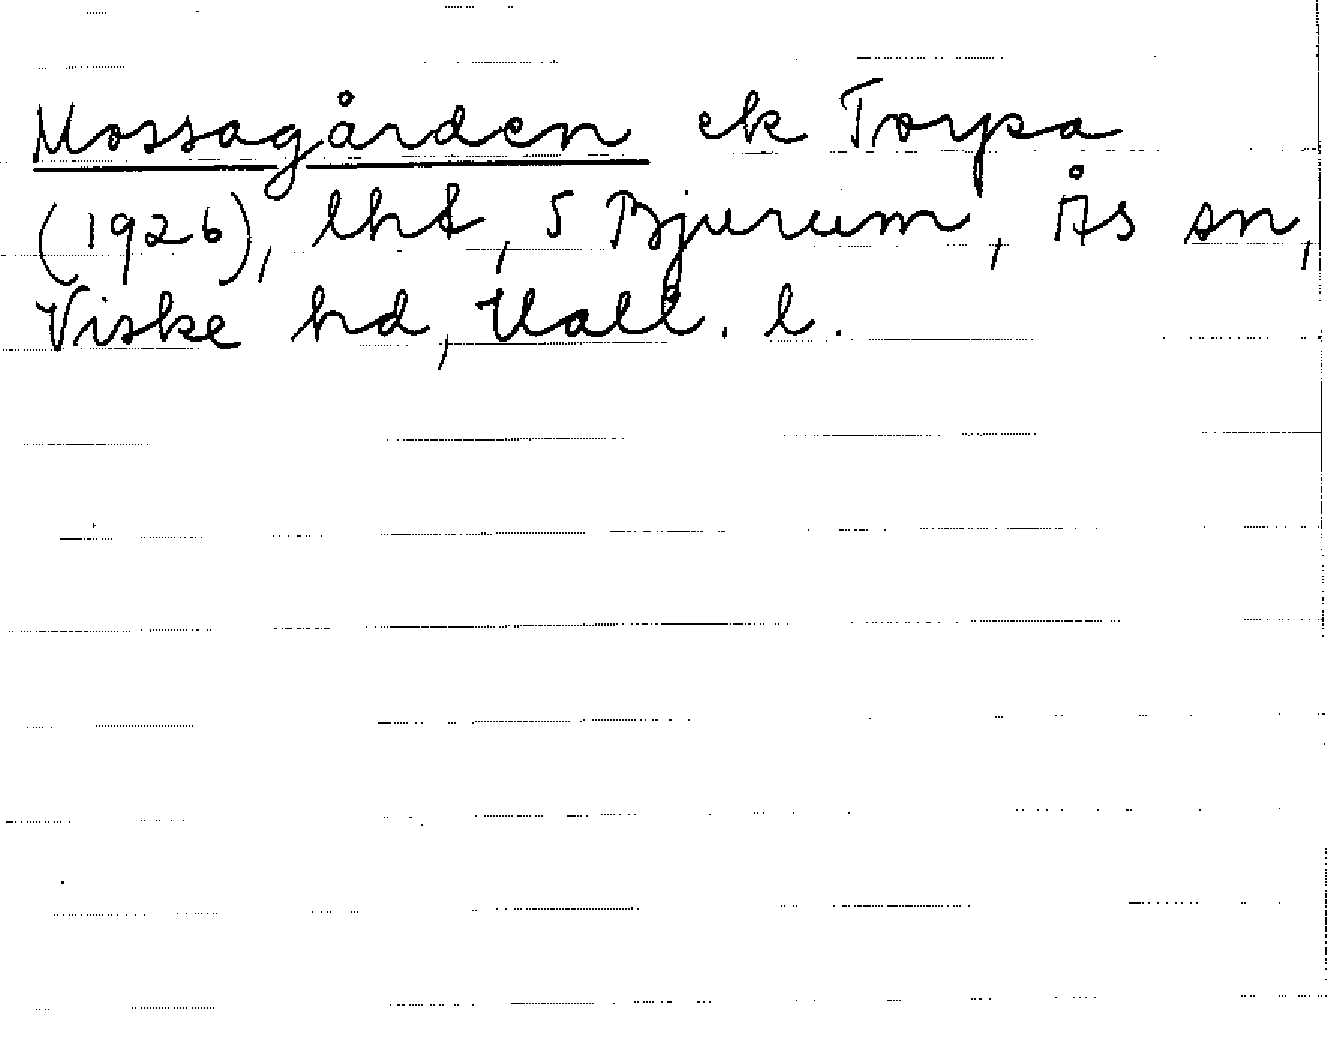 Mossagården ek Torpa
(1926), lht, S Bjurum, Ås sn,
Viske hd, Hall. l.